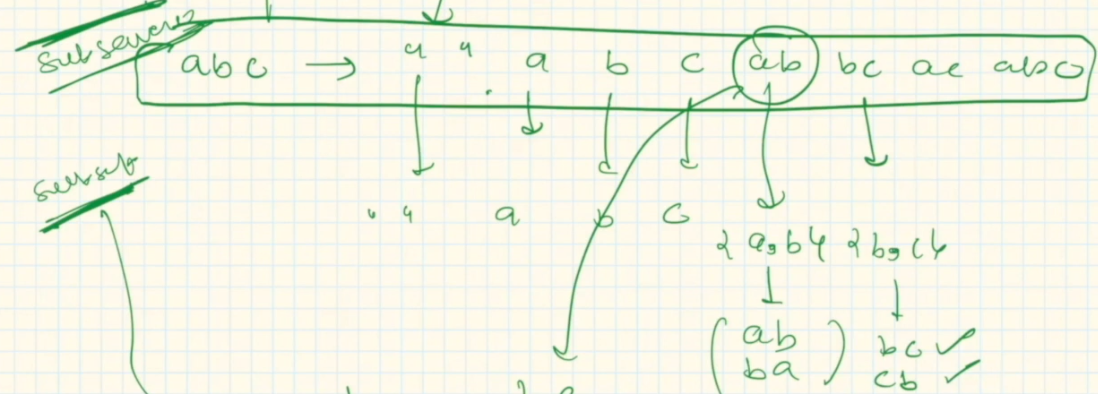 subsequences
abc → " " a b c ab bc ac abc
subset
" " a b c
{a,b} {b,c}
ab bc ✓
ba cb ✓